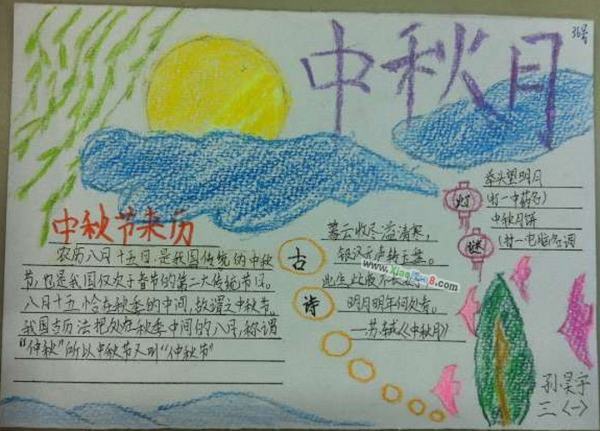 36号
中秋月
中秋节来历
农历八月十五日，是我国传统的中秋
节，也是我国仅次于春节的第二大传统节日。
八月十五恰在秋季的中间，故谓之中秋节。
我国古历法把处在秋季中间的八月，称谓
“仲秋”所以中秋节又叫“仲秋节”
古
诗
暮云收尽溢清寒，
银汉无声转玉盘。
此生此夜不长
明月明年何处看。
—苏轼《中秋月》
灯
谜
举头望明月
(打一中药名)
中秋月饼
(打一电脑名词
孙昊宇
三〈一〉